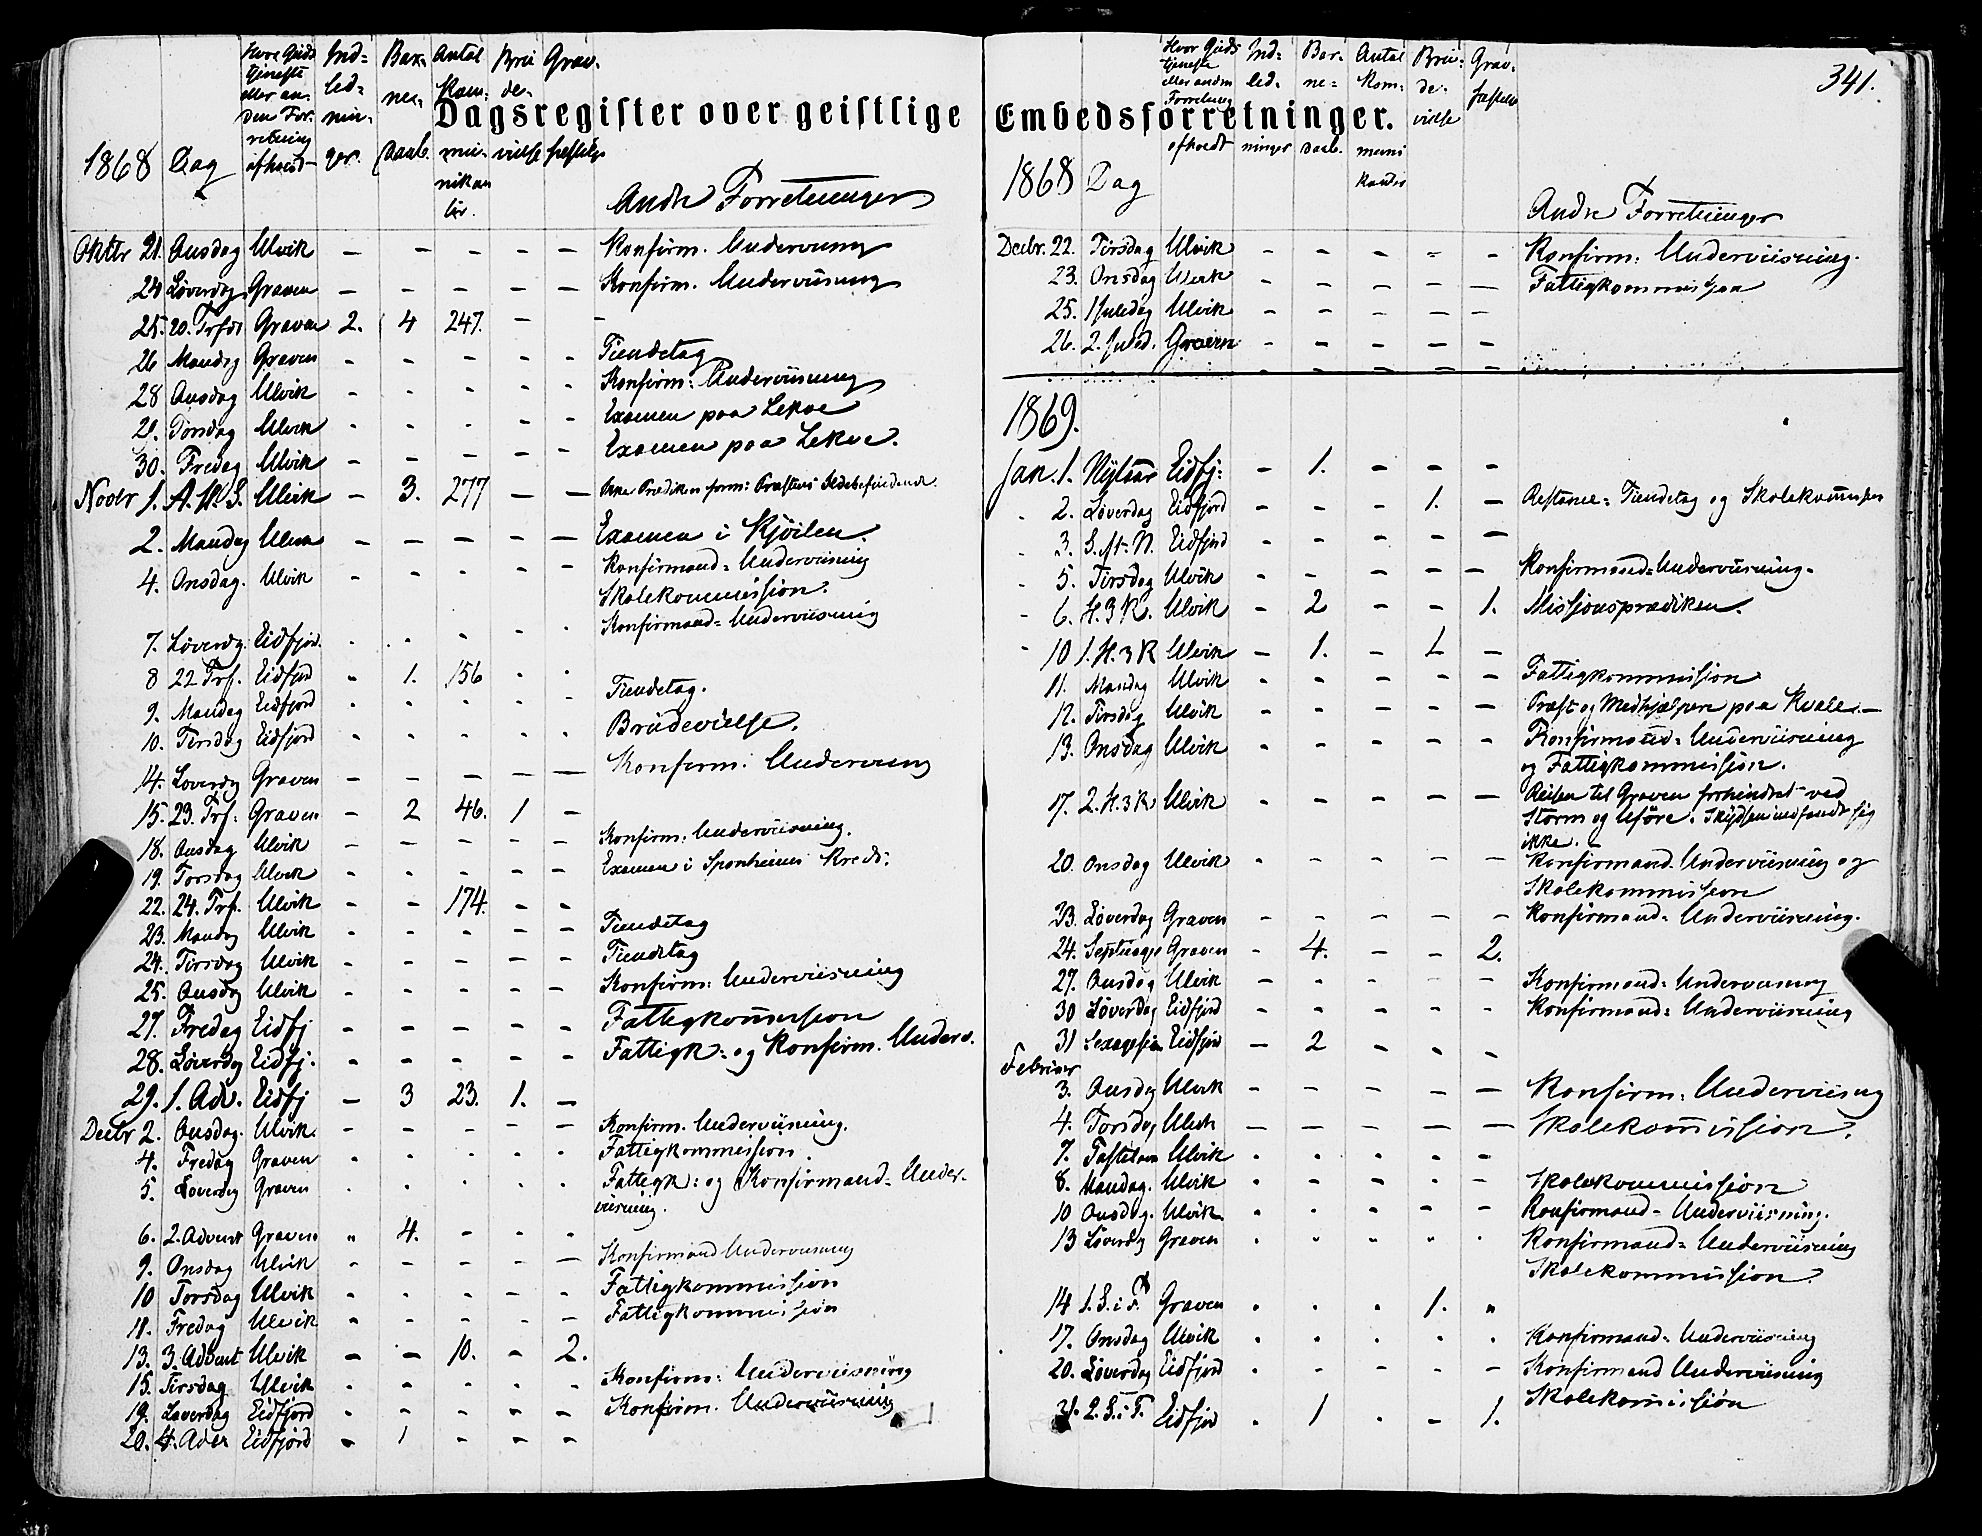 Dagsregister over geistlige Embedsforretninger.
341.
1868 Dag
Hvor Guds
tjeneste
eller an-
den For-
retning
afholdt
Ind-
led-
nin-
ger.
Bar-
ne-
daab.
Antal
Kom-
mu-
nikan
ter.
Bru
de-
vielse
Grav-
festelse
Andre Forretninger
Oktbr 21. Onsdag Ulvik — — — — — Konfirm. Underviisning
24 Løverdag Graven — — — — — Konfirm. Underviisning
25. 20. Trf. Graven 2. 4 247. — —
26 Mandag Graven - - - - - Tiendetag
28 Onsdag Ulvik - - - - - Konfirm: Underviisning
29. Torsdag Ulvik - - - - - Examen paa Lekve
30. Fredag Ulvik - - - - - Examen paa Lekve.
Novbr 1. A. H. S. Ulvik - 3. 277 — — Ikke Prædiken form: Præstens Ildebefindende
2. Mandag Ulvik — — — — — Examen i Kjöilen.
4. Onsdag. Ulvik - - - - - Konfirmand= Underviisning
Skolekommission.
7. Løverdg. Eidfjord. - - - - - Konfirmand= Underviisning
8 22 Trf. Eidfjord - 1. 156 - -
9. Mandag Eidfjord - - - - - Tiendetag.
10. Tirsdag Eidfjord - - - - - Brudevielse.
14. Løverdg Graven — — — — — Konfirm: Underviisning
15. 23. Trf: Graven — 2 46. 1 —
18. Onsdag Ulvik - - - - - Konfirm: Underviisning.
19. Torsdag Ulvik - - - - - Examen i Sponheims Kreds.
22. 24. Trf. Ulvik - - 174. - -
23. Mandag Ulvik - - - - - Tiendetag
24. Tirsdag Ulvik - - - - - Tiendetag
25. Onsdag Ulvik - - - - - Konfirm: Underviisning
27. Fredag Eidfj - - - - - Fattigkommission
28. Løverdg Eidfj. - - - - - Fattigk: og Konfirm. Underv.
29. 1. Adv. Eidfj — 3 23. 1. —
Decbr 2. Onsdag. Ulvik. - - - - - Konfirm. Underviisning.
4. Fredag Graven - - - - - Fattigkommission.
5. Løverdg Graven - - - - - Fattigk: og Konfirmand= Under-
viisning.
6. 2. Advent Graven " 4. - - -
9. Onsdag Ulvik - - - - — Konfirmand Underviisning
10 Torsdag Ulvik - - - - - Fattigkommission
11. Fredag Ulvik - - - - - Fattigkommission
13. 3. Advent Ulvik - - 10. - 2.
15. Tirsdag Ulvik - - - - - Konfirm: Underviisning
19. Løverdag Eidfjord - - - - - Konfirm. Underviisning
20. 4. Adv Eidfjord - 1 - - -
1868 Dag
Hvor Guds
tjeneste
eller anden
Forretning
afholdt
Ind-
led-
ninger
Bar-
ne-
daab.
Antal
Kom-
muni
kanter
Bru-
de-
vielse
Grav-
festelse
Andre Forretninger
Decbr. 22. Tirsdag Ulvik - - - - - Konfirm: Underviisning.
23. Onsdag Ulvik - - - - — Fattigkommission
25. 1 Juledag Ulvik - - - - -
26. 2. Juled. Graven - - - - -
1869.
Jan. 1. Nytaar Eidfj: - 1. - - -
2. Løverdag Eidfjord - - - 1. — Restance= Tiendetag og Skolekommission
3. S. f. N. Eidfjord - - - - —
5. Tirsdag Ulvik - - - - - Konfirmand= Underviisning.
6. H. 3 K. Ulvik - 2 - - 1. Missionsprædiken.
10 1. H. 3 K Ulvik - 1. - 1 —
11. Mandag Ulvik - - - - - Fattigkommission
12. Tirsdag Ulvik - - - - — Præst og Medhjælpere paa Kvale.—
13. Onsdag Ulvik - - - - - Konfirmand= Underviisning
og Fattigkommission.
17. 2. H. 3 K Ulvik - - - - — Reisen til Graven forhindret ved
Storm og Uføre. Skydsen indfandt sig
ikke.
20. Onsdag Ulvik - - - - - Konfirmand. Underviisning og
Skolekommission
23. Løverdag Graven - - - - - Konfirmand= Underviisning.
24. Septuages Graven - 4. - - 2.
27. Onsdag Ulvik - - - - - Konfirmand= Underviisning
30 Løverdag Eidfjord - - - - - Konfirmand= Underviisning
31 Sexages Eidfjord — 2 - - -
Februar
3. Onsdag Ulvik - - - - - Konfirm: Underviisng
4. Torsdag Ulvik — — — — — Skolekommission.
7. Fastelavn Ulvik - - - - -
8. Mandag. Ulvik - - - - — Skolekommission
10 Onsdag. Ulvik - - - - - Konfirmand= Underviisning.
13 Løverdg Graven - - - - - Konfirmand= Underviisning
Skolekommission.
14 1. S. i F. Graven - - - 1. "
17. Onsdag Ulvik - - - - - Konfirmand= Underviisning
20. Løverdag Eidfjord - - - - - Konfirmand Underviisning
Skolekommission
21. 2. S. i F. Eidfjord - 1 - - 1.